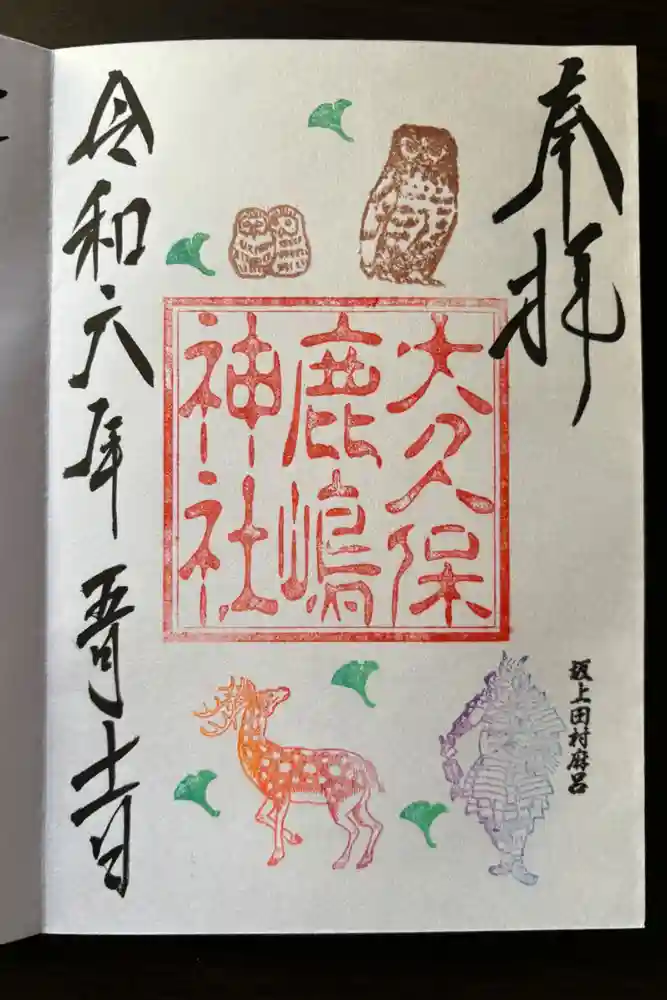 奉拝
大久保
鹿嶋
神社
坂上田村麻呂
令和六年 五月